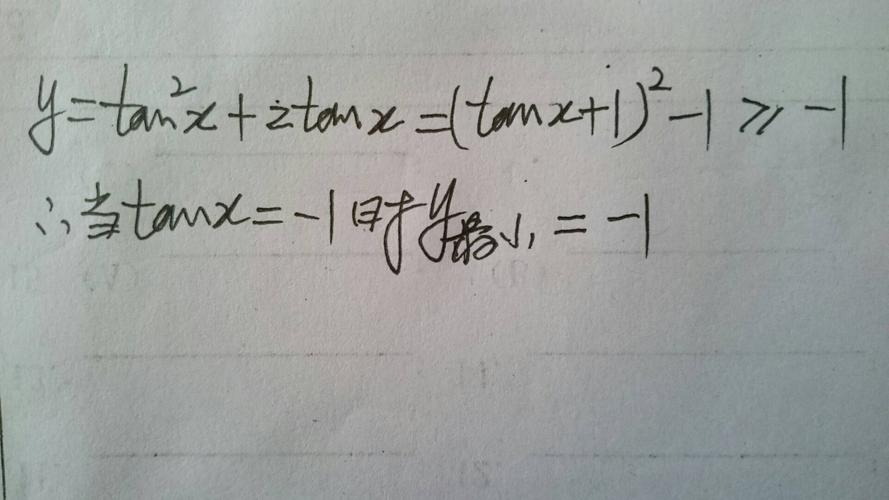 y=tan²x+2tanx=(tanx+1)²-1≥-1
∴当tanx=-1时y最小=-1